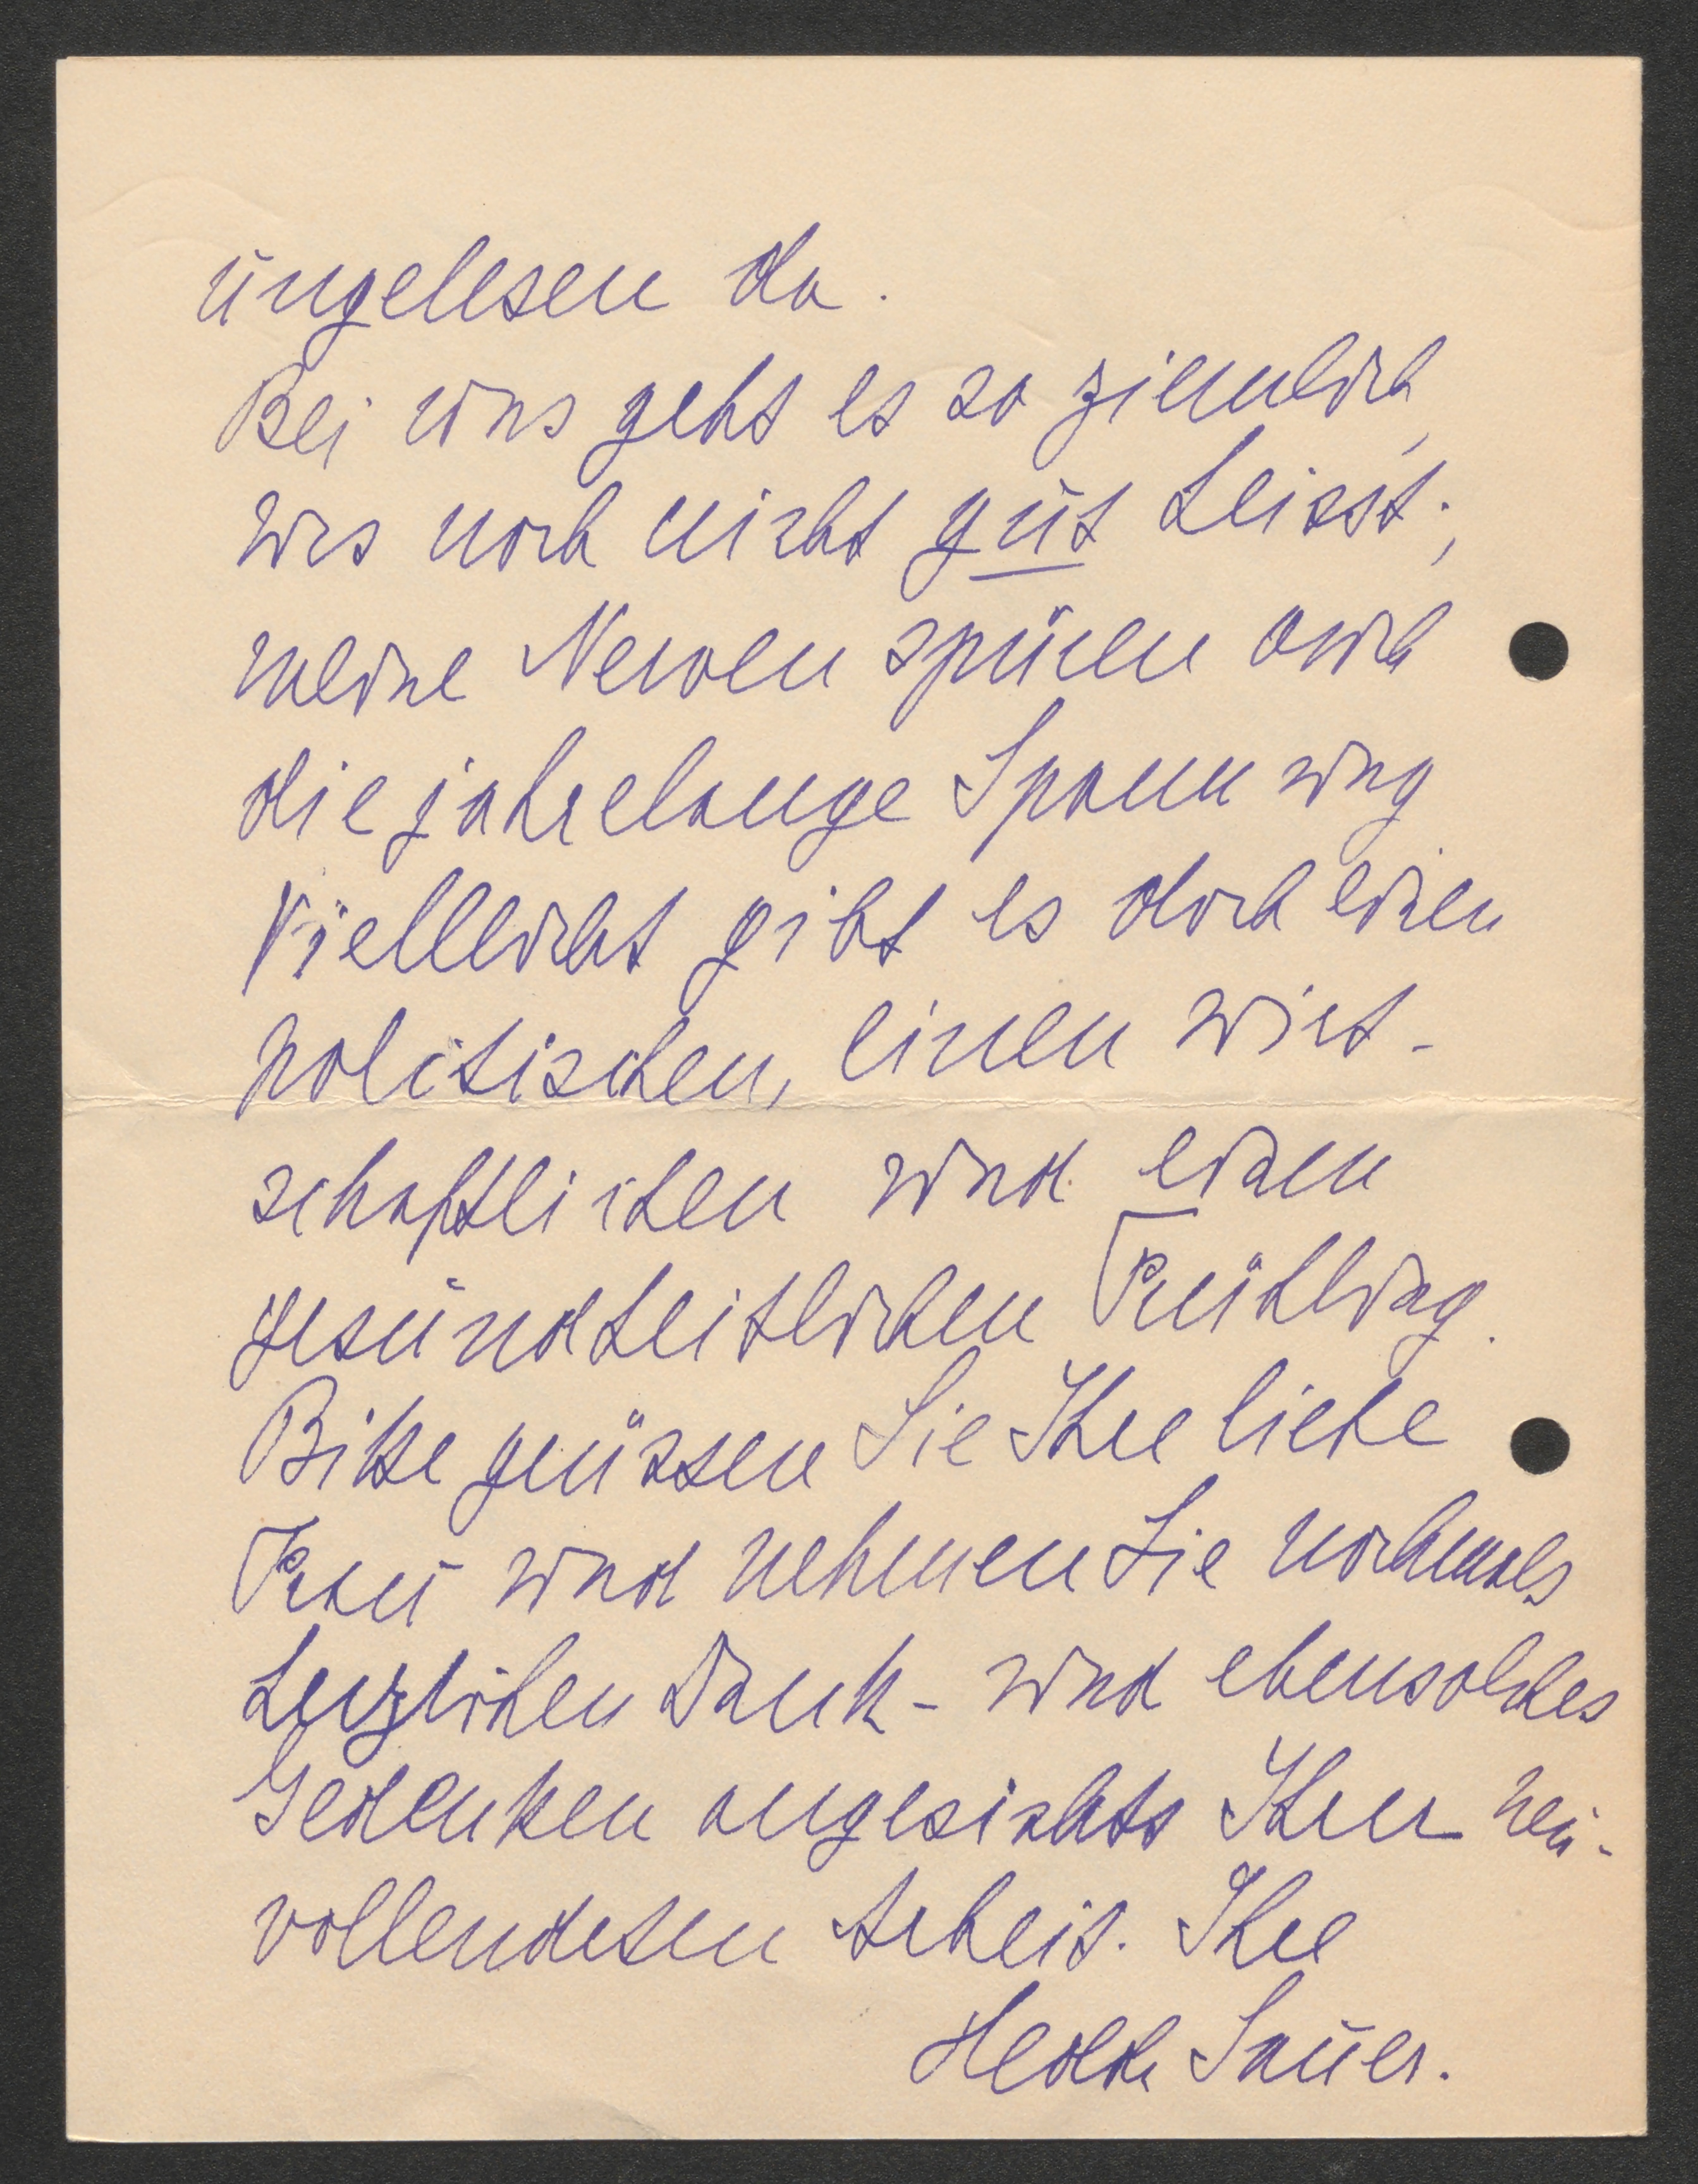 ungelesen da.
Bei uns geht es so ziemlich,
was noch nicht gut heisst;
meine Nerven spüren auch
die jahrelange Spannung
Vielleicht gibt es doch einen
politischen, einen wirt-
schaftlichen und einen
gesundheitlichen Frühling.
Bitte grüssen Sie Ihre liebe
Frau und nehmen Sie nochmals
herzlichen Dank - und ebensolches
Gedenken angesichts Ihrer neu-
vollendeten Arbeit. Ihre
Hedda Sauer.